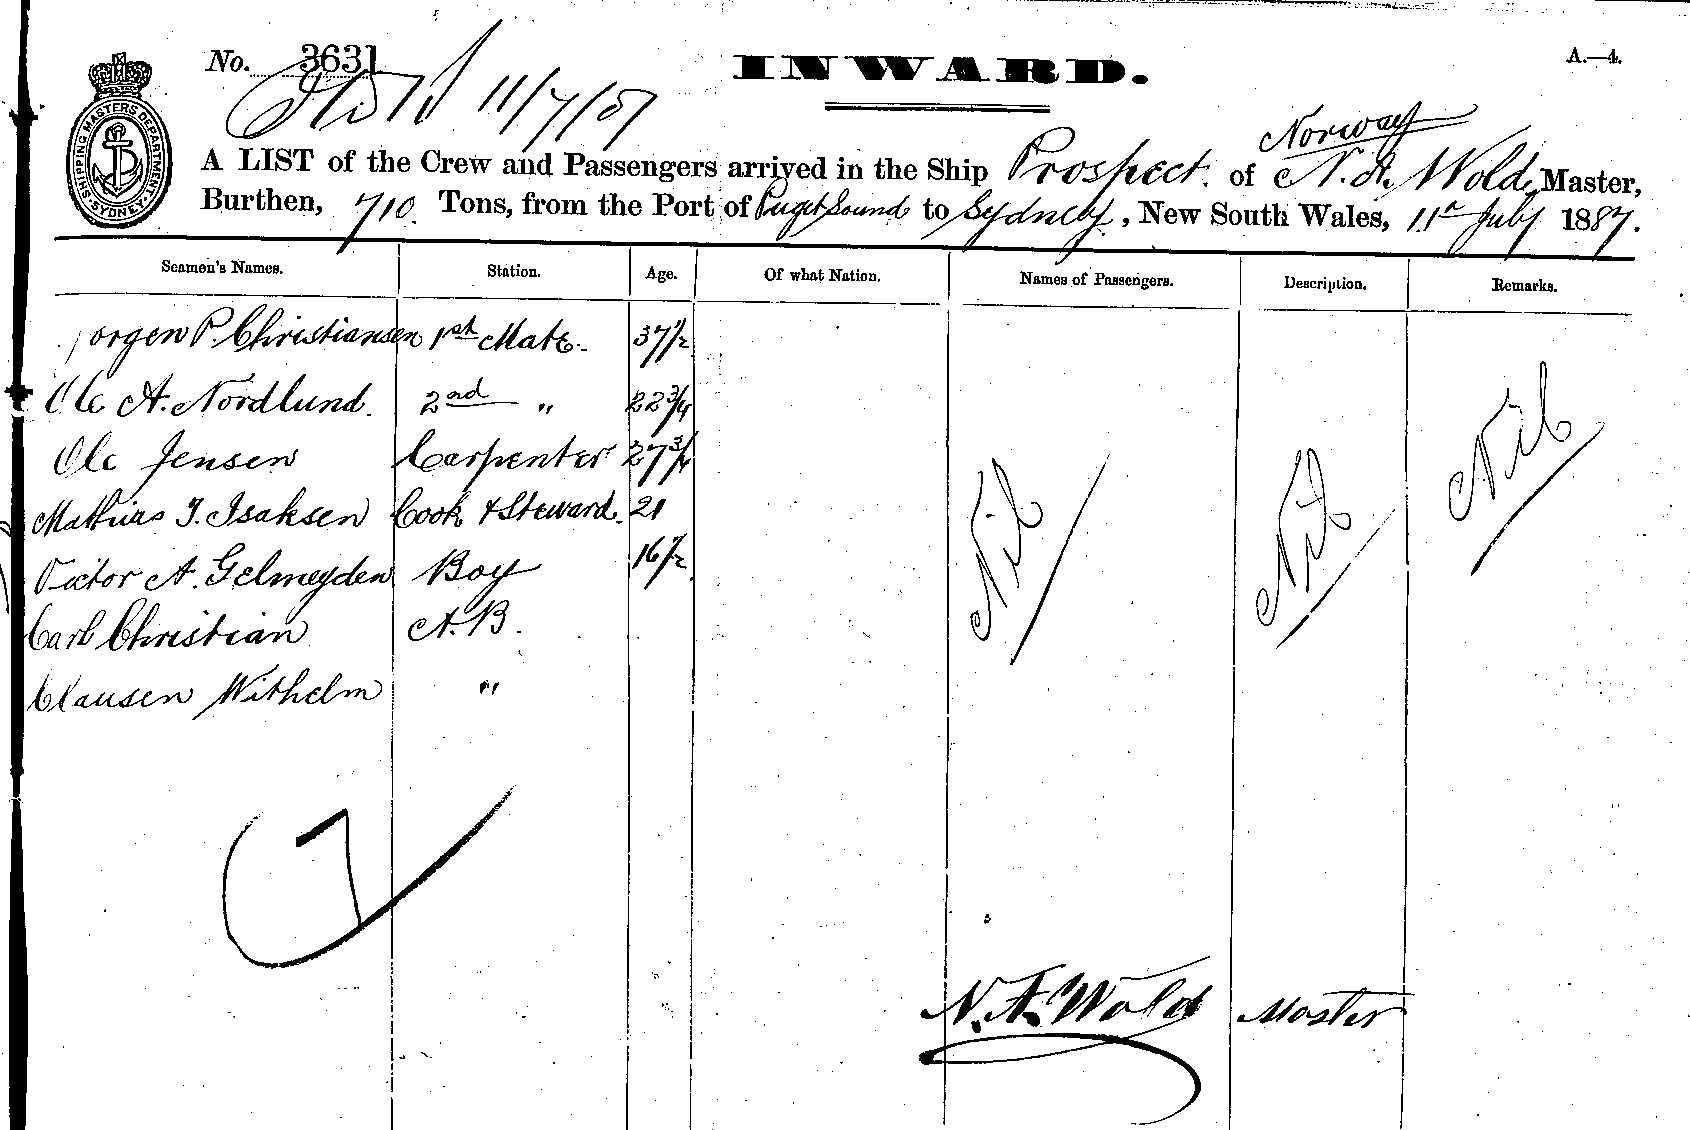 No. 3631
INWARD.
A.—4.
11/7/87
SHIPPING MASTERS DEPARTMENT SYDNEY
Norway
A LIST of the Crew and Passengers arrived in the Ship Prospect. of N. A. Wold, Master,
Burthen, 710. Tons, from the Port of Puget Sound to Sydney, New South Wales, 11th July 1887.
Seamen's Names. Station. Age. Of what Nation. Names of Passengers. Description. Remarks.
Jorgen P. Christiansen 1st Mate. 37 1/2
Ole A. Nordlund. 2nd " 22 3/4
Ole Jensen Carpenter 27 3/4
Mathias J. Isaksen Cook & Steward. 21
Victor A. Gelmeyden Boy 16 1/2
Carl Christian A.B.
Clausen Wilhelm "
Nil Nil Nil
7
N. A. Wold Master